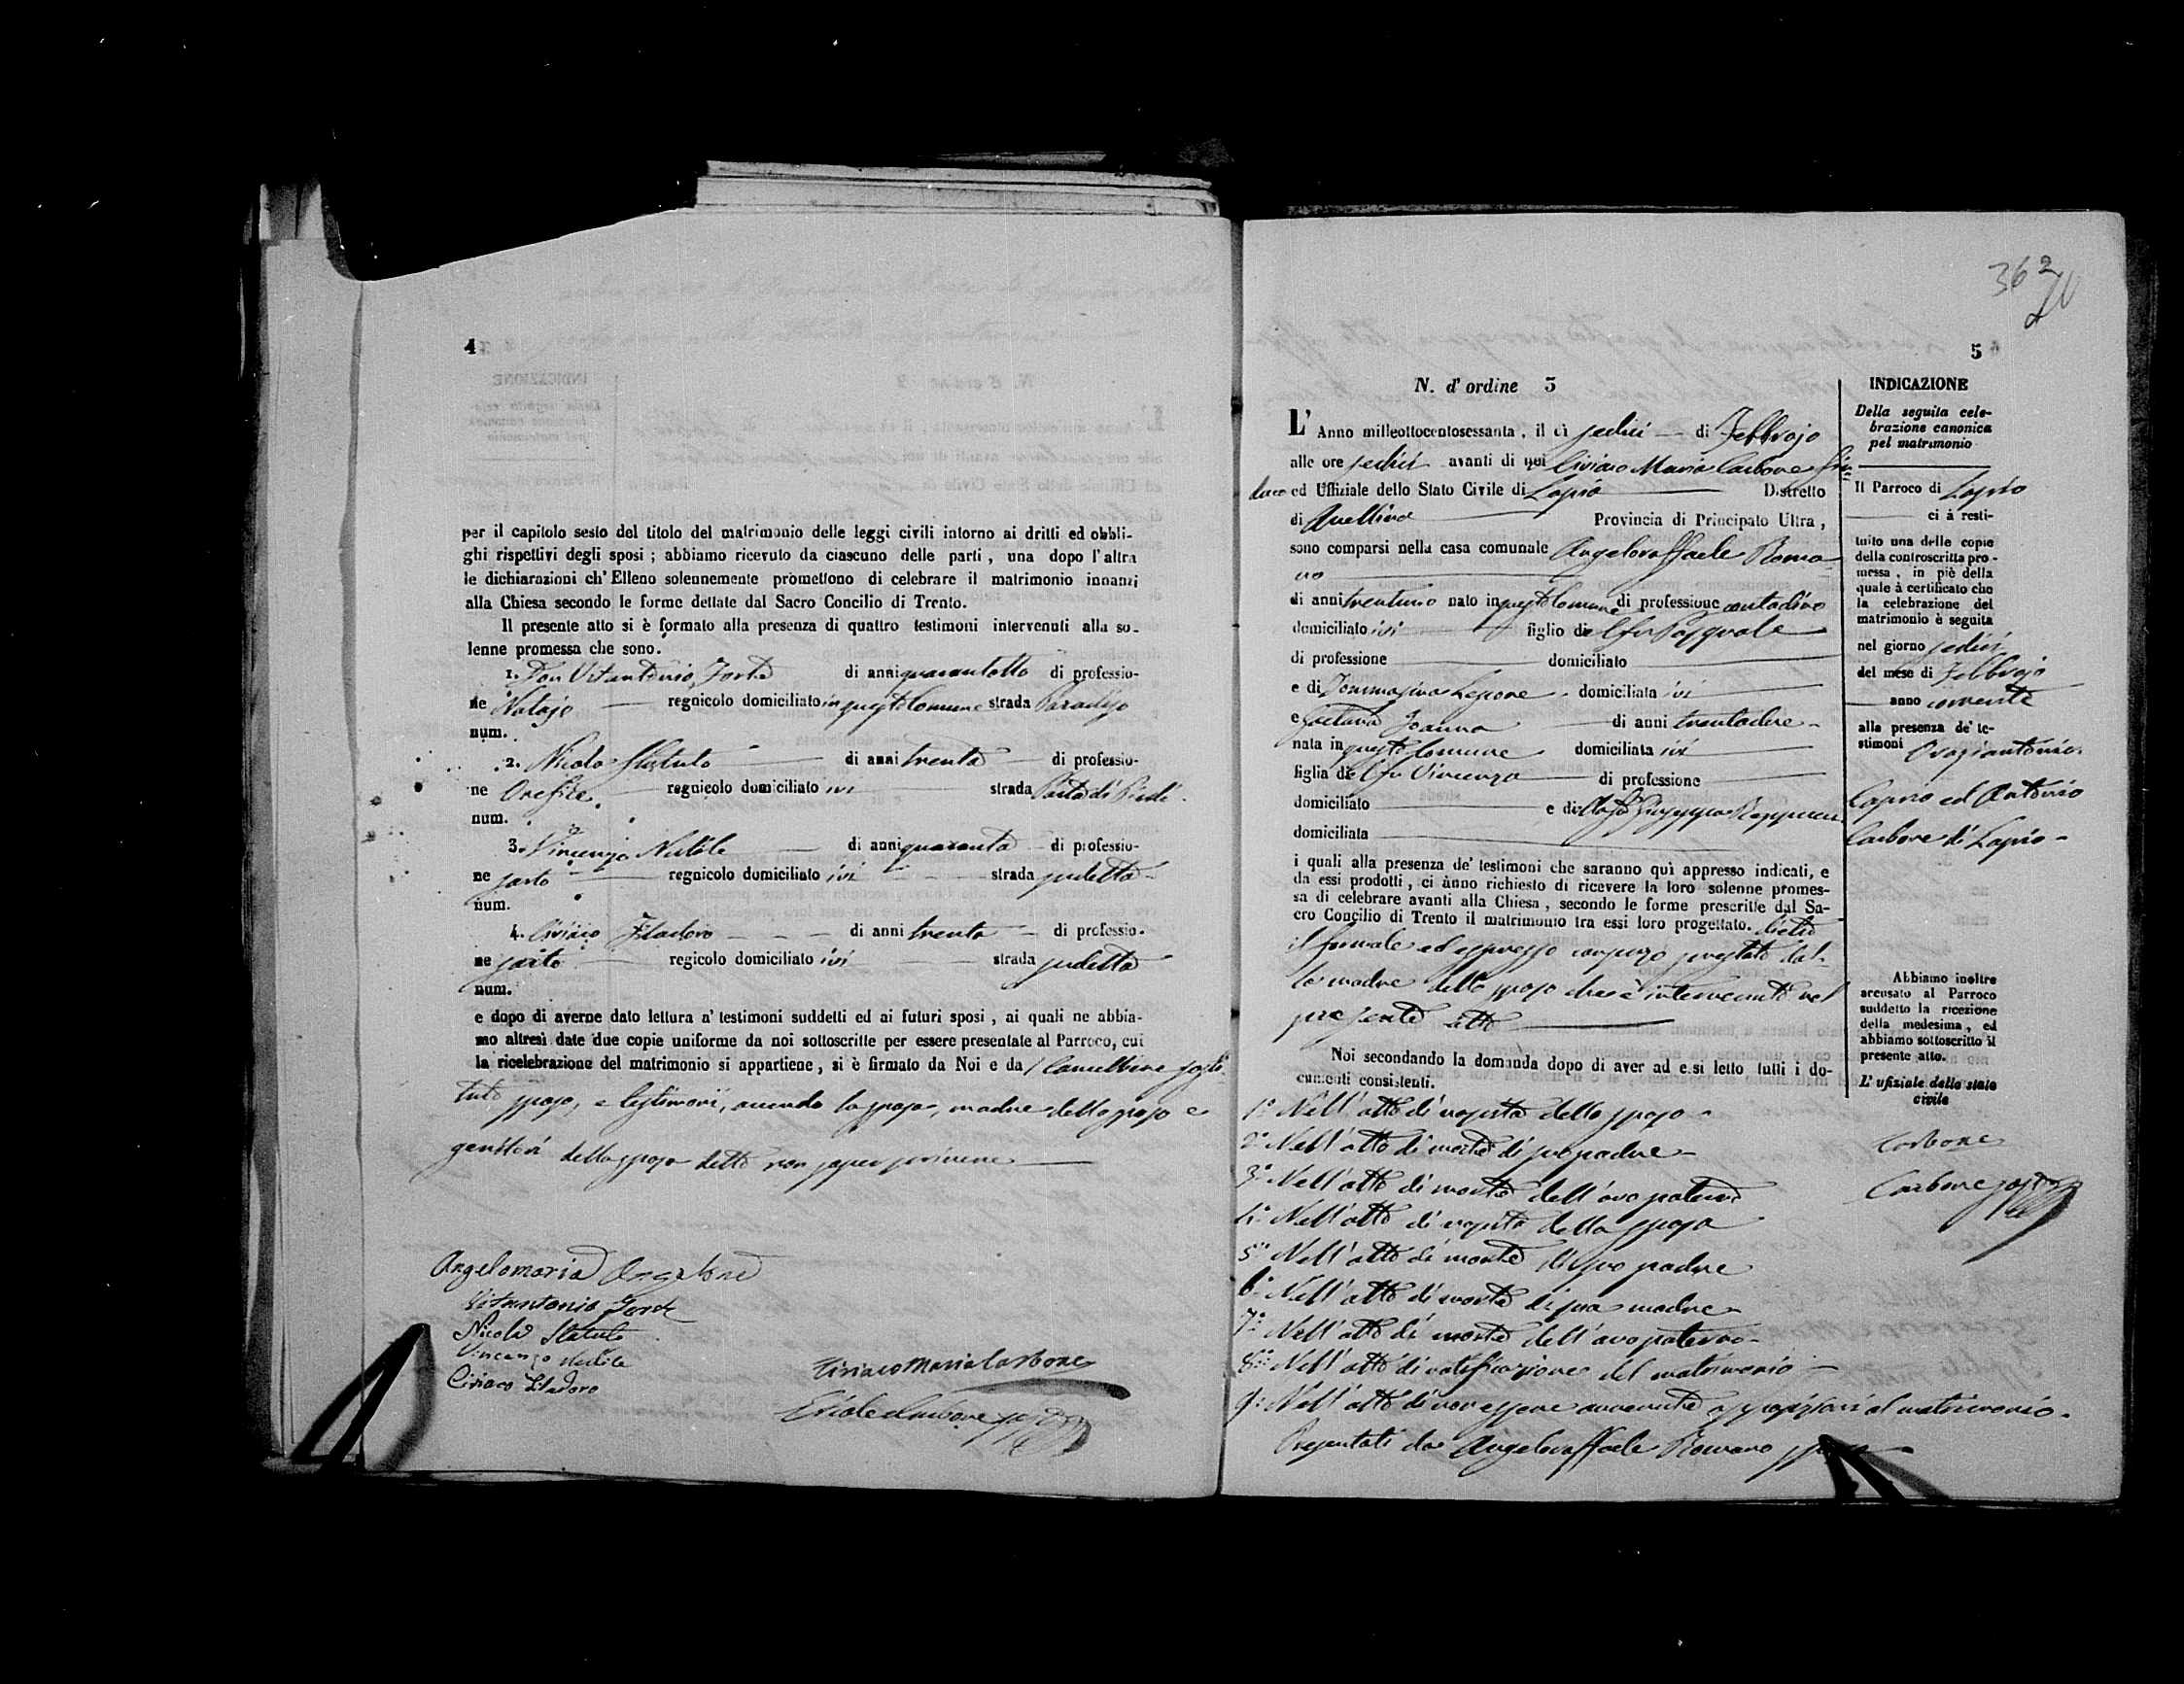 4
per il capitolo sesto del titolo del matrimonio delle leggi civili intorno ai dritti ed obbli-
ghi rispettivi degli sposi ; abbiamo ricevuto da ciascuno delle parti , una dopo l'altra
le dichiarazioni ch' Elleno solennemente promettono di celebrare il matrimonio innanzi
alla Chiesa secondo le forme dettate dal Sacro Concilio di Trento.
Il presente atto si è formato alla presenza di quattro testimoni intervenuti alla so-
lenne promessa che sono.
1. Don Vitantonio Forte di anni quarantotto di professio-
ne Notajo regnicolo domiciliato in questo Comune strada Paradiso
num.
2. Nicola Statuto di anni trenta di professio-
ne Orefice regnicolo domiciliato ivi strada Porta di
num.
3. Vincenzo di anni quaranta di professio-
ne sarto regnicolo domiciliato ivi strada sudetta
num.
4. Ciriaco di anni trenta di professio-
ne sarto regicolo domiciliato ivi strada sudetta
num.
e dopo di averne dato lettura a' testimoni suddetti ed ai futuri sposi , ai quali ne abbia-
mo altresì date due copie uniforme da noi sottoscritte per essere presentate al Parroco, cui
la ricelebrazione del matrimonio si appartiene , si è firmato da Noi e da Cancelliere sosti
tuto sposo, e testimoni, avendo la sposa, madre dello sposo e
genitori della sposa detto non saper scrivere
Angelomaria
Vitantonio Forte
Nicola Statuto
Vincenzo
Ciriaco
Ciriaco Maria Carbone
Carbone
362
5
N. d'ordine 3
L'Anno milleottocentosessanta , il dì sedici di Febbrajo
alle ore sedici avanti di noi Ciriaco Maria Carbone Sin-
daco ed Uffiziale dello Stato Civile di Lapio Distretto
di Avellino Provincia di Principato Ultra ,
sono comparsi nella casa comunale Angeloraffaele Roma-
no
di anni trentuno nato in questo Comune di professione contadino
domiciliato ivi figlio del fu Pasquale
di professione domiciliato
e di Tommasina domiciliata ivi
e Gaetana Joanna di anni trentadue
nata in questo Comune domiciliata ivi
figlia del fu Vincenzo di professione
domiciliato e di Giuseppa
domiciliata
i quali alla presenza de' testimoni che saranno quì appresso indicati, e
da essi prodotti , ci ànno richiesto di ricevere la loro solenne promes-
sa di celebrare avanti alla Chiesa , secondo le forme prescritte dal Sa-
cro Concilio di Trento il matrimonio tra essi loro progettato. dietro
il formale ed espresso consenso prestato dal-
la madre dello sposo che è intervenuta nel
presente atto
Noi secondando la domanda dopo di aver ad essi letto tutti i do-
cumenti consistenti.
1° Nell'atto di nascita dello sposo
2° Nell'atto di morte di suo padre
3° Nell'atto di morte dell'avo paterno
4° Nell'atto di nascita della sposa
5° Nell'atto di morte di suo padre
6° Nell'atto di morte di sua madre
7° Nell'atto di morte dell'avo paterno
8° Nell'atto di notificazione del matrimonio
9° Nell'atto di non essere avvenute opposizioni al matrimonio.
Presentati da Angeloraffaele Romano sposo
INDICAZIONE
Della seguita cele-
brazione canonica
pel matrimonio
Il Parroco di Lapio
ci à resti-
tuito una delle copie
della controscritta pro-
messa , in piè della
quale à certificato che
la celebrazione del
matrimonio è seguita
nel giorno sedici
del mese di Febbrajo
anno corrente
alla presenza de' te-
stimoni Oraziantonio
Caprio ed Antonio
Carbone di Lapio
Abbiamo inoltre
accusato al Parroco
suddetto la ricezione
della medesima , ed
abbiamo sottoscritto il
presente atto.
L' ufiziale dello stato
civile
Carbone
Carbone